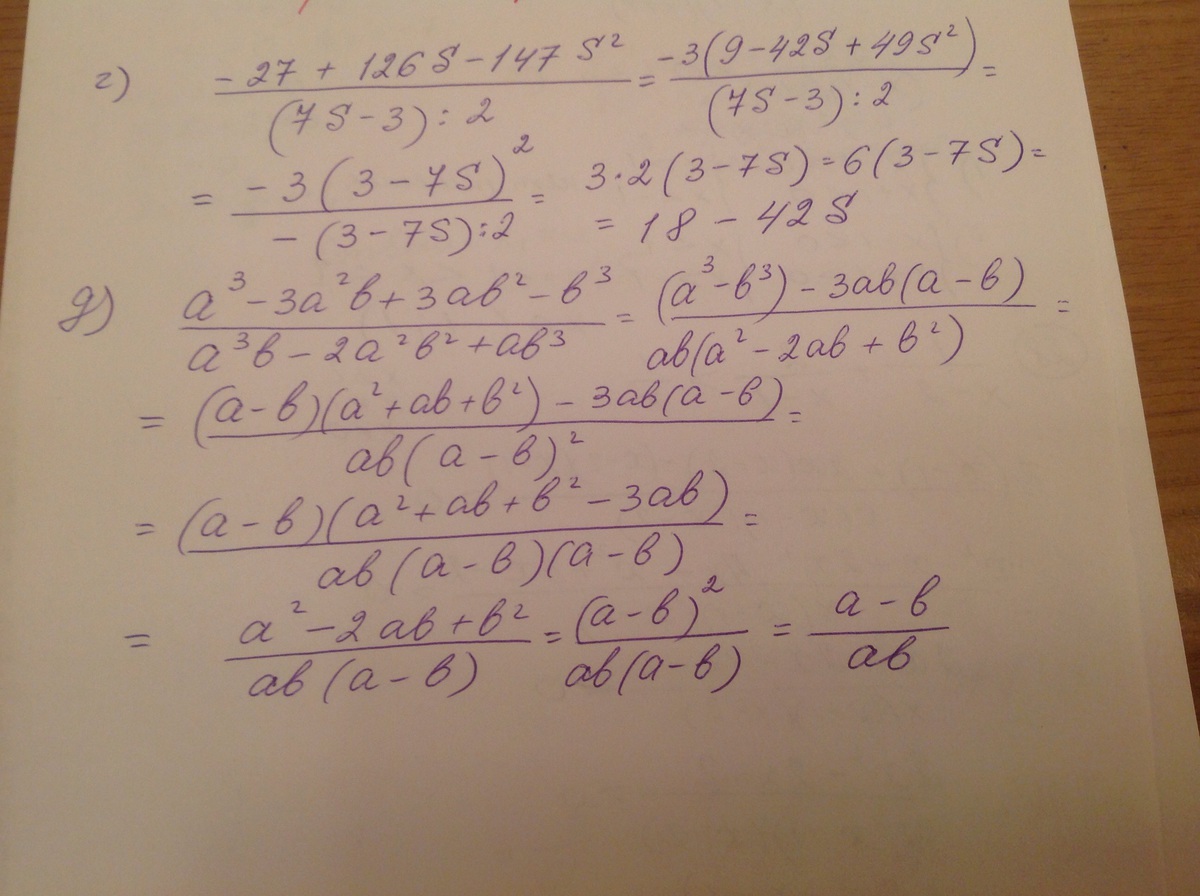 г) (-27 + 126S - 147S²)/((7S - 3) : 2) = (-3(9 - 42S + 49S²))/((7S - 3) : 2) =
= (-3(3 - 7S)²)/(-(3 - 7S) : 2) = 3·2(3 - 7S) = 6(3 - 7S) =
= 18 - 42S
д) (a³ - 3a²b + 3ab² - b³)/(a³b - 2a²b² + ab³) = ((a³ - b³) - 3ab(a - b))/(ab(a² - 2ab + b²)) =
= ((a - b)(a² + ab + b²) - 3ab(a - b))/(ab(a - b)²) =
= ((a - b)(a² + ab + b² - 3ab))/(ab(a - b)(a - b)) =
= (a² - 2ab + b²)/(ab(a - b)) = (a - b)²/(ab(a - b)) = (a - b)/(ab)